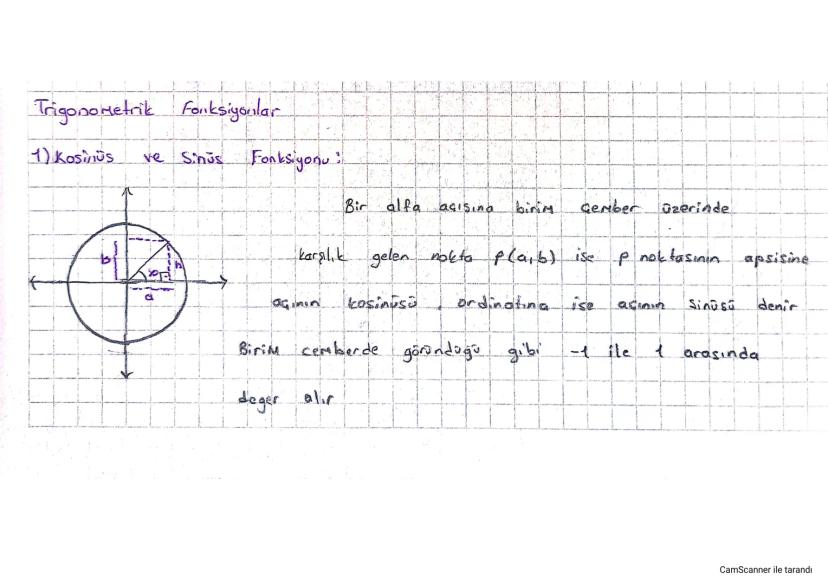 Trigonometrik Fonksiyonlar
1) Kosinüs ve Sinüs Fonksiyonu :
Bir alfa açısına birim çember üzerinde
karşılık gelen nokta P(a,b) ise P noktasının apsisine
açının kosinüsü , ordinatına ise açının sinüsü denir
Birim cemberde göründüğü gibi -1 ile 1 arasında
deger alır
b
a
CamScanner ile tarandı